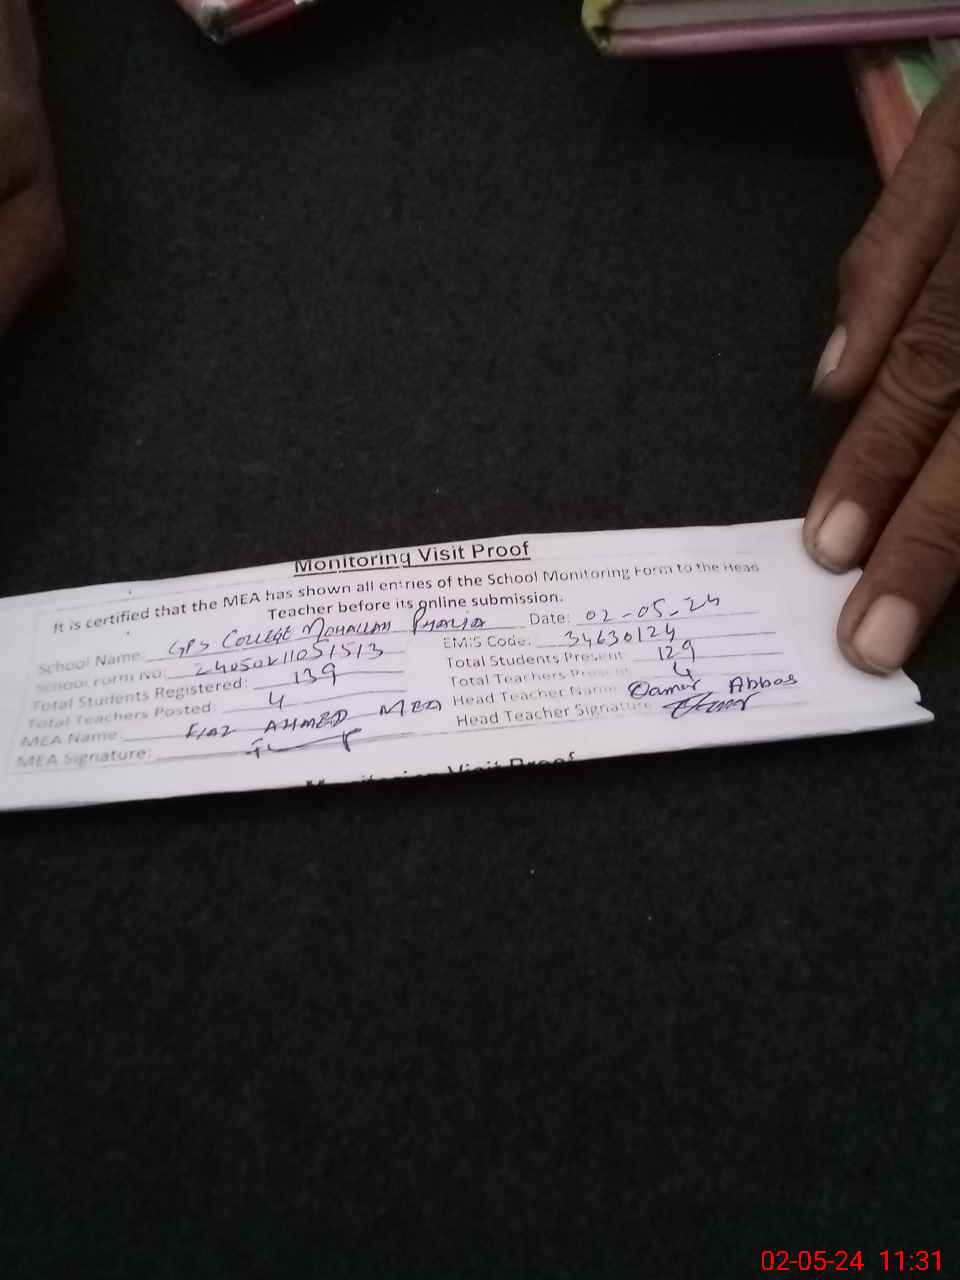 Monitoring Visit Proof
It is certified that the MEA has shown all entries of the School Monitoring Form to the Head
Teacher before its online submission.
School Name: GPS COLLEGE MOHALLAH PHALIA Date: 02-05-24
School Form No: 24050211051513 EMIS Code: 34630124
Total Students Registered: 139 Total Students Present: 129
Total Teachers Posted: 4 Total Teachers Present: 4
MEA Name: AHMED MEA Head Teacher Name: Qamar Abbas
MEA Signature: Head Teacher Signature:
Monitoring Visit Proof
02-05-24 11:31